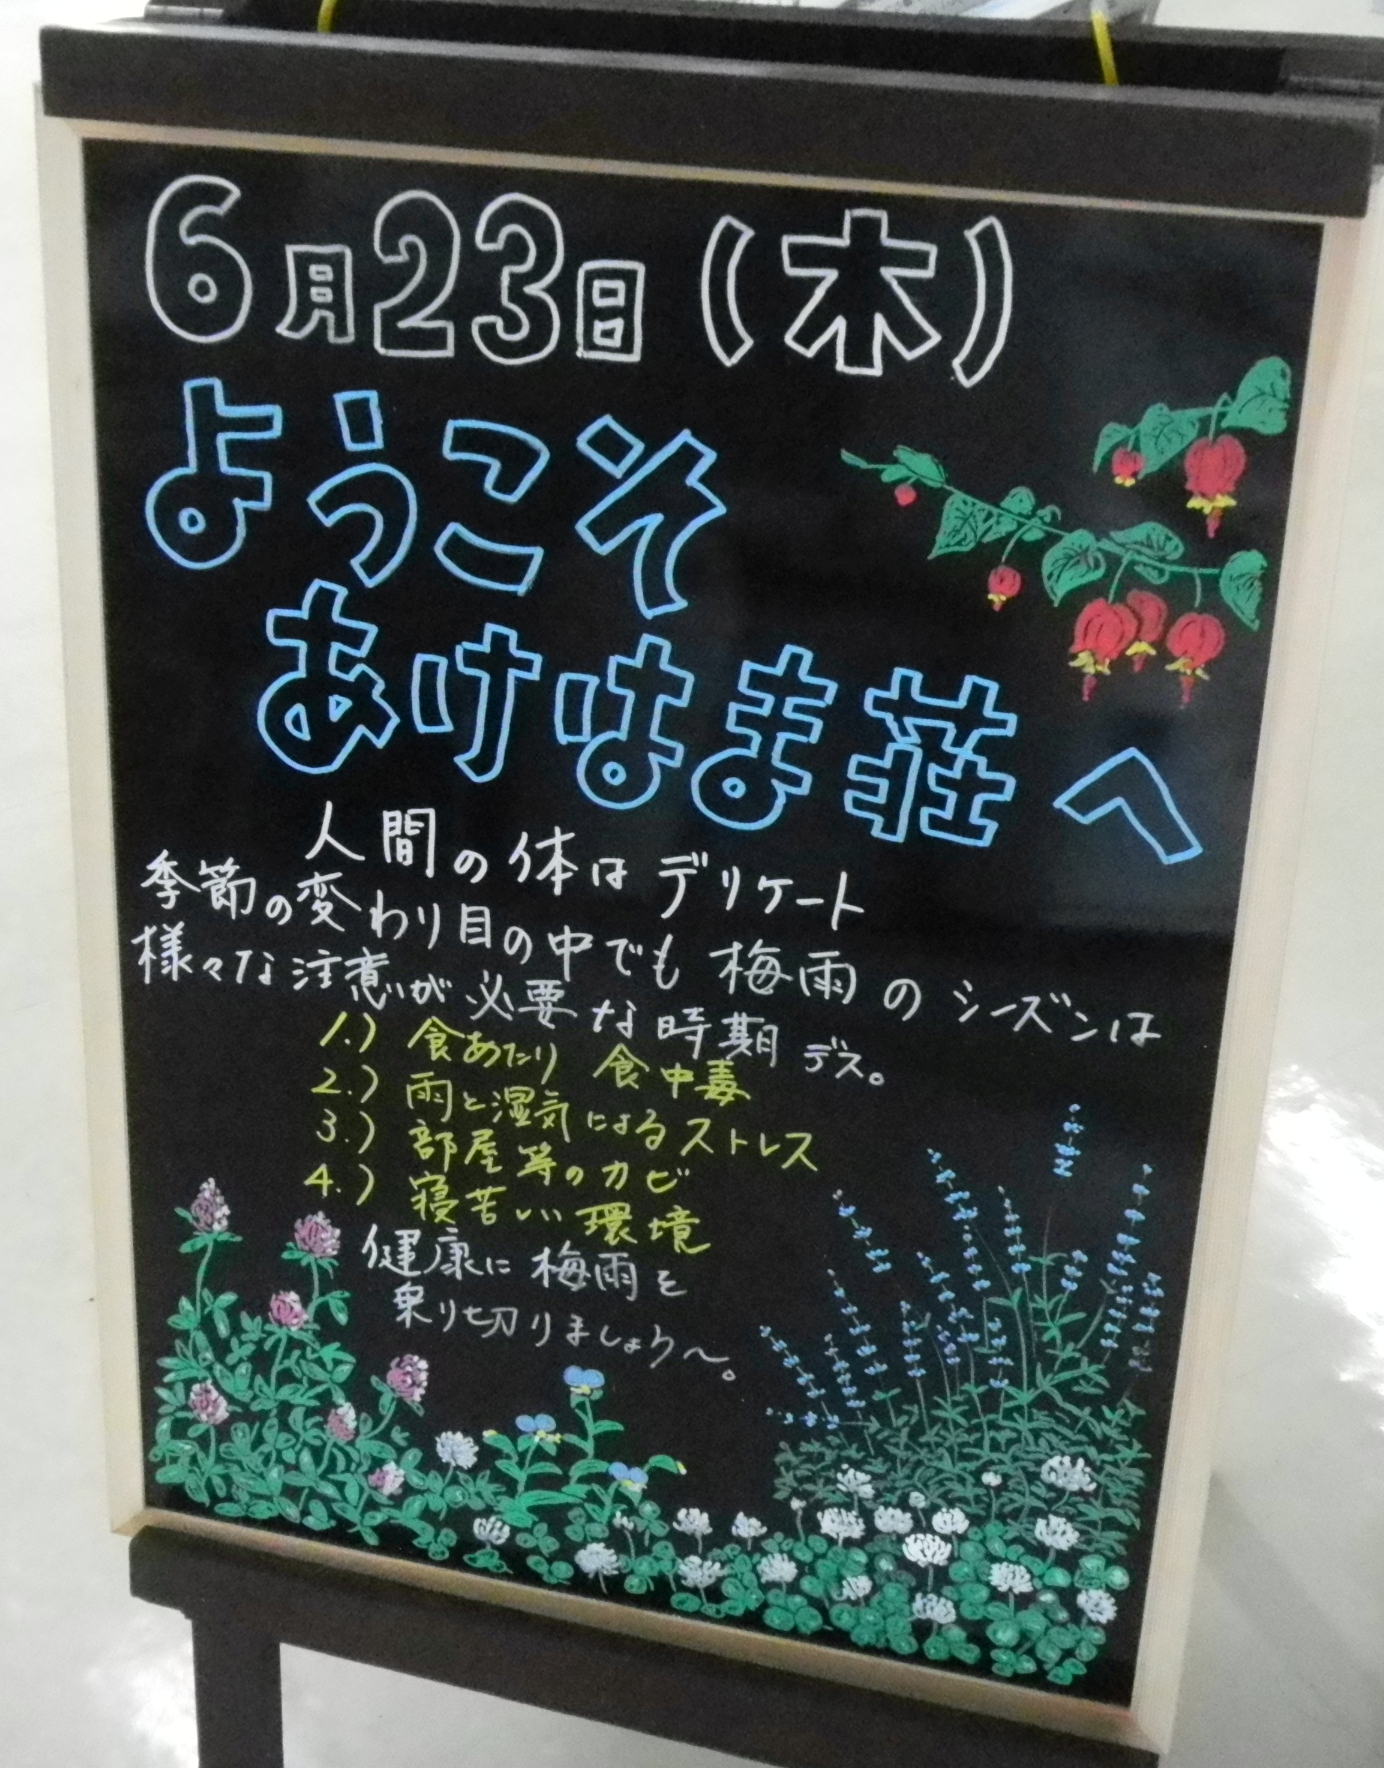 6月23日(木)
ようこそ
あけはま荘へ
人間の体はデリケート
季節の変わり目の中でも梅雨のシーズンは
様々な注意が必要な時期デス。
1.) 食あたり 食中毒
2.) 雨と湿気によるストレス
3.) 部屋等のカビ
4.) 寝苦しい環境
健康に梅雨を
乗り切りましょう〜。